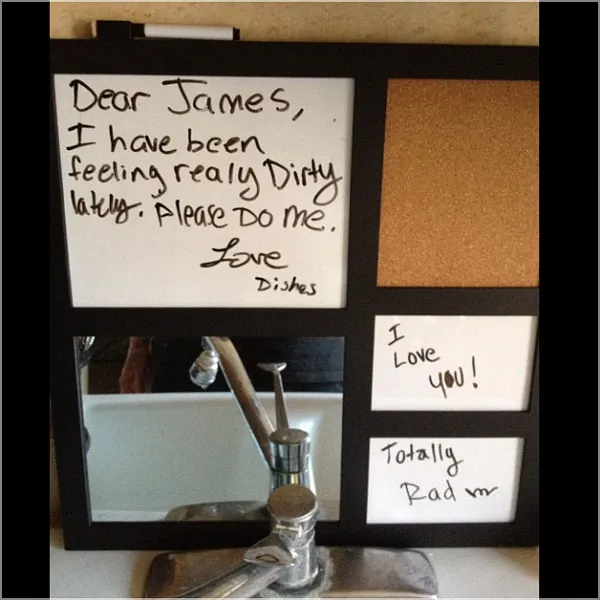 Dear James,
I have been
feeling realy Dirty
lately. Please Do me.
Love
Dishes
I
Love
you!
Totally
Rad